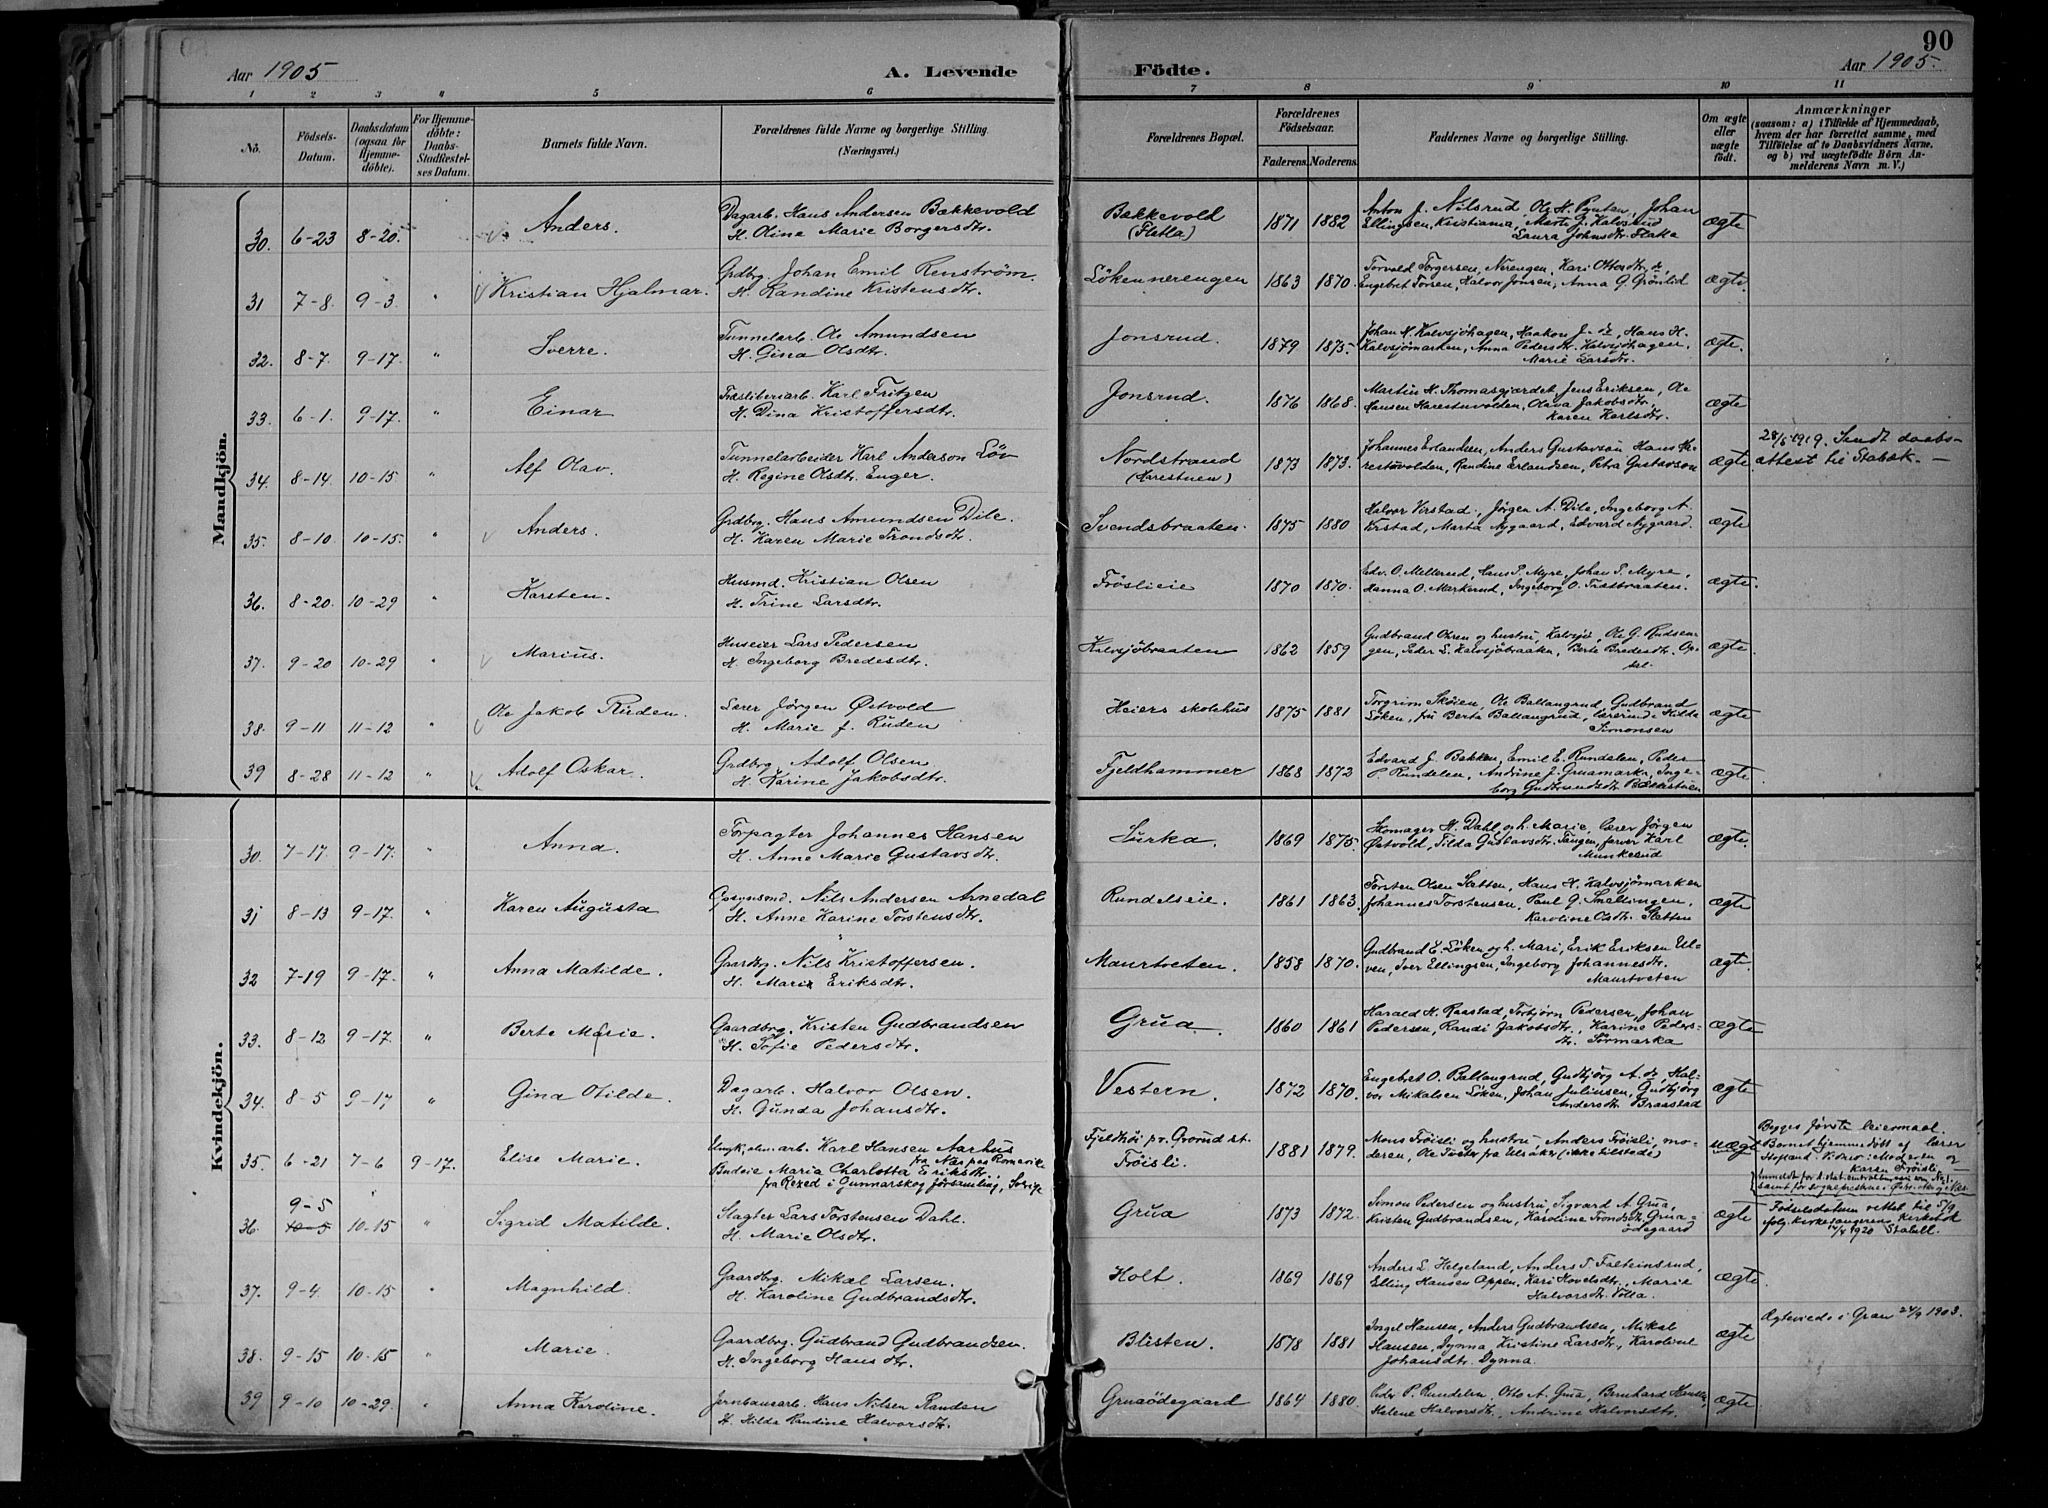 90
Aar 1905
A. Levende
Födte.
Aar 1905.
1 2 3 4 5 6 7 8 9 10 11
No.
Födsels-
Datum.
Daabsdatum
(ogsaa for
Hjemme-
döbte).
For Hjemme-
döbte:
Daabs-
Stadfæstel-
ses Datum.
Barnets fulde Navn.
Forældrenes fulde Navne og borgerlige Stilling.
(Næringsvei.)
Forældrenes Bopæl.
Forældrenes
Födselsaar.
Faderens. Moderens.
Faddernes Navne og borgerlige Stilling.
Om ægte
eller
uægte
födt.
Anmærkninger
(saasom: a) i Tilfælde af Hjemmedaab,
hvem der har forrettet samme, med
Tilföielse af to Daabsvidners Navne,
og b) ved uægtefödte Börn An-
melderens Navn m. V.)
Mandkjön.
30. 6-23 8-20. Anders.
Dagarb. Hans Andersen Bækkevold
H. Oline Marie Borgersdtr.
Bækkevold
(Fletla)
1871 1882
Anton J. Nilsrud, Ole H. Pynten, Johan
Ellingsen, Kristiania, Marte J. Kalvsjö
Laura Johnsdtr. Flatla
ægte
31 7-8. 9-3 " Kristian Hjalmar.
Grdbrg. Johan Emil Renström.
H. Randine Kristensdtr.
Lökennerengen
1863 1870.
Torvald Torgersen, Nerengen, Kari Ottersdtr. do,
Engebret Torsen, Halvor Jonsen, Anna G. Grönlid
ægte
32. 8-7. 9-17. " Sverre.
Tunnelarb. Ole Amundsen
H. Gina Olsdtr.
Jonsrud.
1879 1875.
Johan H. Kalvsjöhagen, Haakon J. do, Hans H.
Kalvsjömarken, Anna Pedersdtr. Kalvsjöhagen,
Marie Larsdtr.
ægte.
33. 6-1. 9-17. " Einar
Træsliberiarb. Karl Fritzen
H. Dina Kristoffersdtr.
Jonsrud.
1876 1868.
Martin H. Thomasgjærdet, Jens Eriksen, Ole
Hansen Harestuvolden, Olava Jakobsdtr,
Karen Karlsdtr.
ægte
34. 8-14. 10-15 " Alf Olav.
Tunnelarbeider Karl Anderson Löv
H. Regine Olsdtr. Enger.
Nordstrand
(Harestuen)
1873 1873.
Johannes Erlandsen, Anders Gustavson Hans Ha-
restuvolden, Randine Erlandsen, Petra Gustavson
ægte
28/6 1919. Sendt daabs-
attest til Stabæk. —
35. 8-10. 10-15. " Anders.
Grdbrg. Hans Amundsen Dile.
H. Karen Marie Trondsdtr.
Svendsbraaten.
1875 1880
Halvor Virstad, Jörgen A. Dile, Ingeborg A.
Virstad, Marta Nygaard, Edvard Nygaard.
ægte
36. 8-20. 10-29 " Karsten.
Husmd. Kristian Olsen
H. Trine Larsdtr.
Fröslieie
1870 1870.
Edv. O. Mellerud, Hans P. Myre, Johan P. Myre,
Hanna O. Markerud, Ingeborg O. Trætbraaten.
ægte.
37. 9-20 10-29 " Marius.
Huseier Lars Pedersen
H. Ingeborg Bredesdtr.
Kalvsjöbraaten
1862 1859
Gudbrand Ohren og hustru, Kalvsjö, Ole G. Rudsen-
gen, Peder L. Kalvsjöbraaten, Berte Bredesdtr. Op-
dal.
ægte.
38. 9-11 11-12 " Ole Jakob Ruden.
Lærer Jörgen Østvold
H. Marie J. Ruden
Heiers skolehus
1875 1881
Torgrim Skòien, Ole Ballangrud, Gudbrand
Löken, fru Berta Ballangrud, lærerinde Hilda
Simonsen
ægte
39 8-28 11-12 " Adolf Oskar.
Grdbrg. Adolf Olsen
H. Karine Jakobsdtr.
Fjeldhammer
1868 1872
Edvard J. Bakken, Emil E. Rundelen, Peder
P. Rundelen, Andrine J. Gruamarka, Inge-
borg Gudbrandsdtr.
ægte
Kvindekjön.
30. 7-17. 9-17. " Anna.
Forpagter Johannes Hansen
H. Anne Marie Gustavsdtr.
Surka.
1869 1875.
Skomager H. Dahl, o.h. Marie, lærer Jörgen
Østvold, Tilda Gustavsdtr. Tangen, farver Karl
Munkerud
ægte.
31 8-13 9-17. " Karen Augusta
Opsynsmd. Nils Andersen Arnedal
H. Anne Karine Torstensdtr.
Rundelseie.
1861 1863.
Torsten Olsen Sletten, Hans H. Kalvsjömarken
Johannes Torstensen, Paul G. Smellingen,
Karoline Olsdtr. Sletten
ægte
32 7-19 9-17. " Anna Matilde.
Gaardbg. Nils Kristoffersen.
H. Mari Eriksdtr.
Maurtveten.
1858 1870.
Gudbrand E. Löken og h. Mari, Erik Eriksen Ul-
ven, Iver Ellingsen, Ingeborg Johannesdtr.
Maurtveten
ægte.
33. 8-12 9-17. " Berte Marie.
Gaardbrg. Kristen Gudbrandsen
H. Sofie Pedersdtr.
Grua.
1860 1861
Harald H. Raastad, Torbjörn Pedersen, Johan
Pedersen, Randi Jakobsdtr., Karine Peders-
dtr. Sörmarka
ægte
34. 8-5 9-17 " Gina Otilde.
Dagarb. Halvor Olsen.
H. Gunda Johansdtr.
Vestern.
1872 1870.
Engebret O. Ballangrud, Gudbjörg A. do, Hal-
vor Mikalsen Löken, Johan Juliussen, Gudbjörg
Andersdtr. Braastad
ægte
35. 6-21 7-6 9-17. Elise Marie.
Ungk., elm. arb. Karl Hansen Aarhus
fra Næs paa Romerike
Budeie Maria Charlotta Eriksdtr.
fra Rexed i Gunnarskog församling, Sverige
Fjeldhöi pr. Grorud st.
Fröisli.
1881 1879.
Mons Fröisli og hustru, Anders Fröisli, mo-
deren, Ole Tveter fra Ullsåker (ikke tilstede)
uægte
Begges förste leiermaal.
Barnet hjemmedöbt af lærer
Hofland. Vidner: Moderen og
Karen Fröisli. —
36. 9-5 ~~10-5~~ 10-15 " Sigrid Matilde.
Slagter Lars Torstensen Dahl.
H. Marie Olsdtr.
Grua
1873 1872.
Simon Pedersen og hustru, Sigvard A. Grua,
Kristen Gudbrandsen, Karoline Trondsdtr. Grua-
ödegaard
ægte
Födselsdatum rettet til 5/9
flg. kirkesangerens Kirkebok
1920 Stabell.
37. 9-4. 10-15. " Magnhild.
Gaardbrg. Mikal Larsen.
H. Karoline Gudbrandsdtr.
Holt.
1869 1869
Anders L. Helgeland, Anders T. Falteinsrud,
Elling Hansen Oppen, Kari Hovelsdtr., Marie
Halvorsdtr. Volla.
ægte.
38. 9-15 10-15 " Marie.
Gaardbrg. Gudbrand Gudbrandsen.
H. Ingeborg Hansdtr.
Blisten.
1878 1881
Ingel Hansen, Anders Gudbrandsen, Mikal
Hansen, Dynna, Kristine Larsdtr., Karoline
Johansdtr. Dynna.
ægte
Ægteviede i Gran 24/9 1903.
39 9-10 10-29. " Anna Karoline.
Jernbanearb. Hans Nilsen Randen
H. Hilda Randine Halvorsdtr.
Gruaödegaard
1864 1880.
Peder P. Rundelen, Otto A. Grua, Bernhard Hansen,
Helene Halvorsdtr., Andrine Halvorsdtr.
ægte